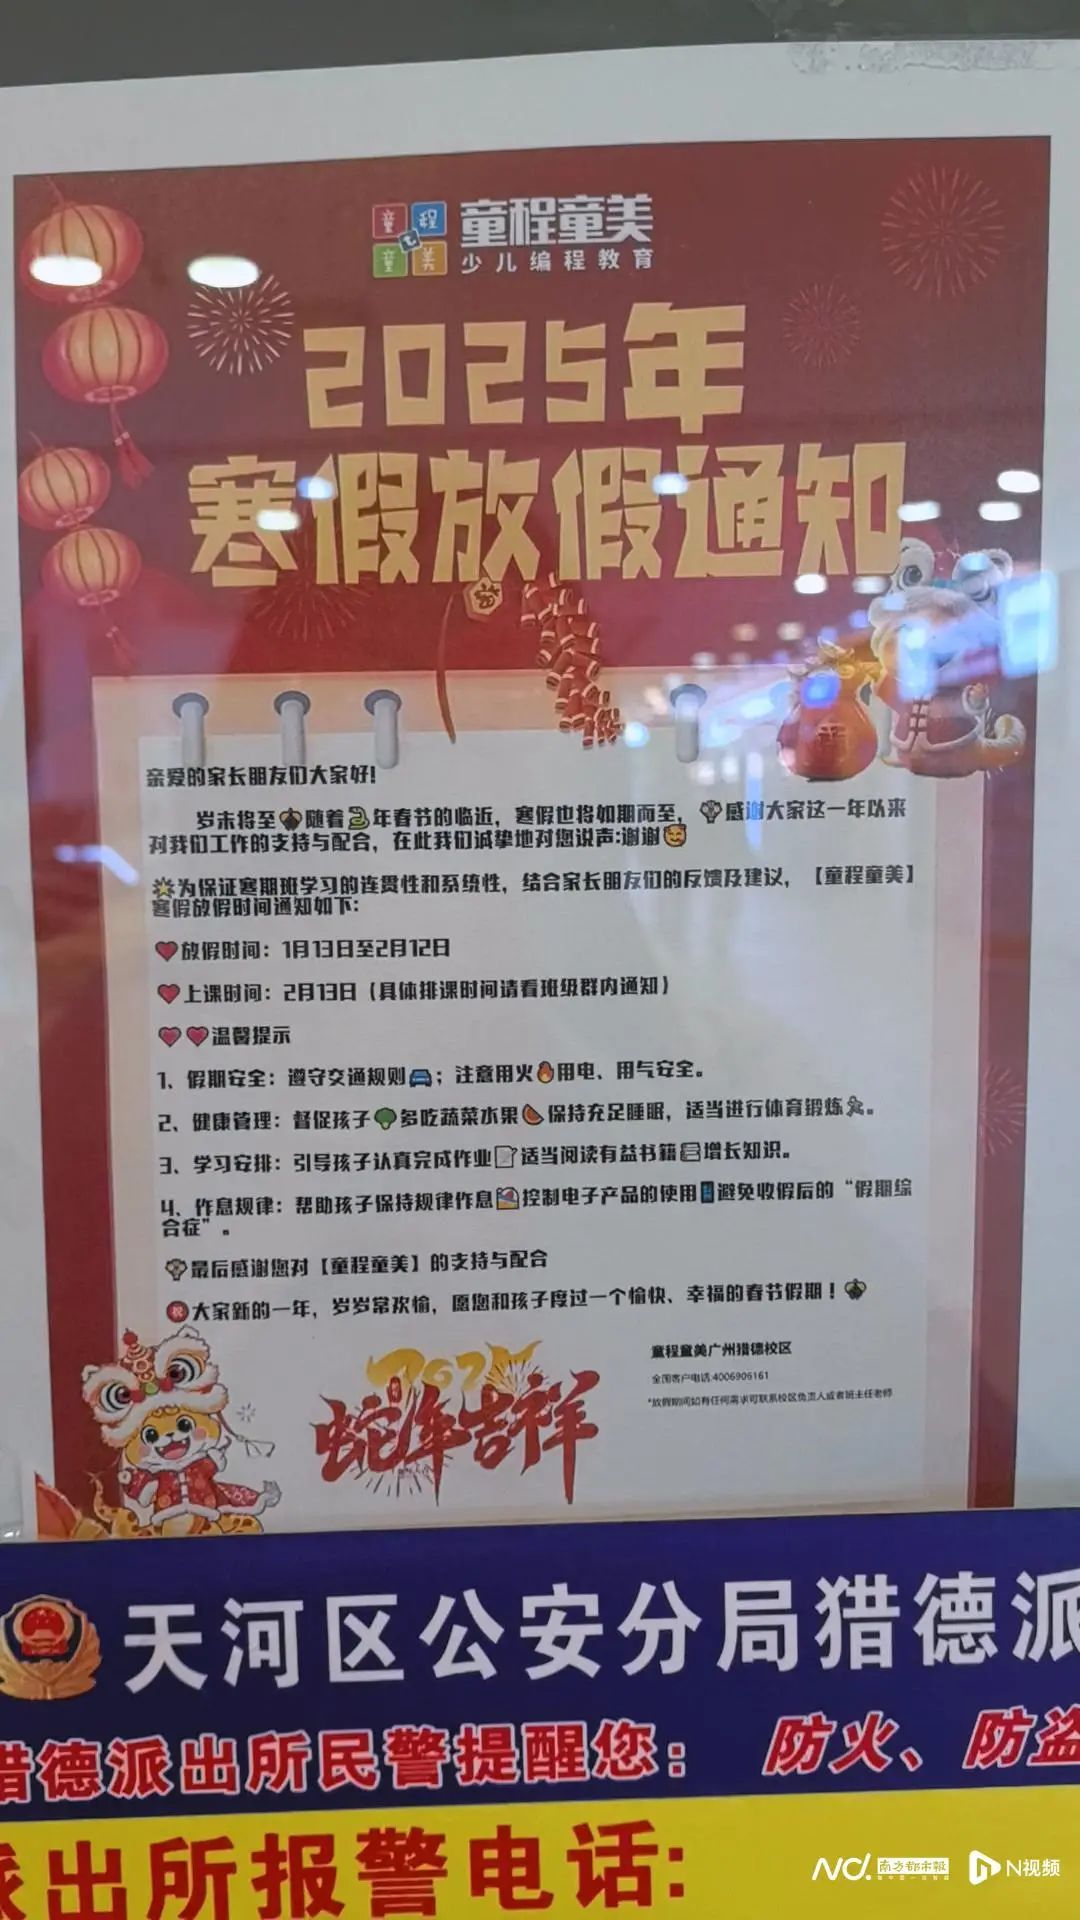 童程童美
少儿编程教育
2025年
寒假放假通知
亲爱的家长朋友们大家好!
岁末将至随着🐍年春节的临近，寒假也将如期而至，💐感谢大家这一年以来
对我们工作的支持与配合，在此我们诚挚地对您说声:谢谢🥰
🌟为保证寒期班学习的连贯性和系统性，结合家长朋友们的反馈及建议，【童程童美】
寒假放假时间通知如下：
❤️放假时间：1月13日至2月12日
❤️上课时间：2月13日（具体排课时间请看班级群内通知）
❤️❤️温馨提示
1、假期安全：遵守交通规则🚘；注意用火🔥用电、用气安全。
2、健康管理：督促孩子🥦多吃蔬菜水果🍉保持充足睡眠，适当进行体育锻炼。
3、学习安排：引导孩子认真完成作业📝适当阅读有益书籍增长知识。
4、作息规律：帮助孩子保持规律作息控制电子产品的使用避免收假后的“假期综
合症”。
💐最后感谢您对【童程童美】的支持与配合
㊗️大家新的一年，岁岁常欢愉，愿您和孩子度过一个愉快、幸福的春节假期！
2025
蛇年吉祥
童程童美广州猎德校区
全国客户电话:4006906161
*放假期间如有任何需求可联系校区负责人或者班主任老师
天河区公安分局猎德派
猎德派出所民警提醒您：防火、防盗
派出所报警电话:
N视频
南方都市报